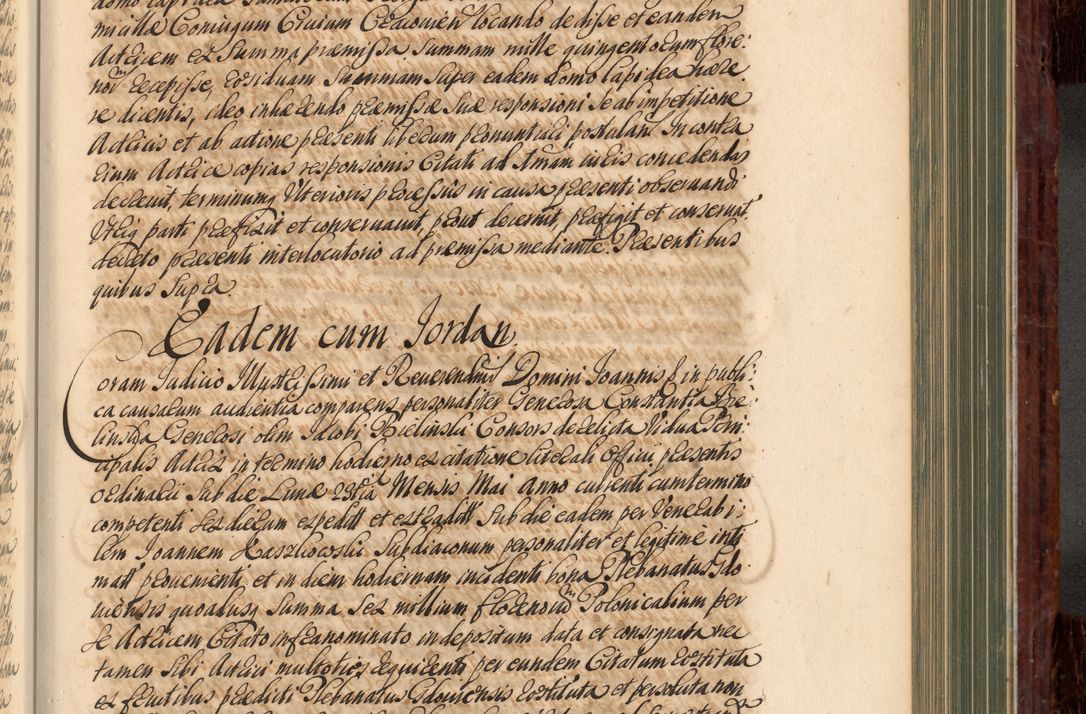 mille Coniugum Civium Cracovien Vocando dedisse et eandem
Actricem ex Summa præmissa Summam mille quingentorum flore:
nor̃m recepisse, residuam Summam super eadem Domo lapidea hære:
re dicentis, ideo inhærendo præmissæ Suæ responsioni se ab impetitione
Actricis et ab actione præsenti liberum pronuntiari postulan̄t. In contra
rium Actrice copias responsionis Citati ad Suam iuris concedendas
decrevit, terminum Ulterioris processus in causa præsenti observandi
Utriq parti præfixit et conservavit, prout decernit, præfigit et conservat,
decreto præsenti interlocutorio ad præmissa mediante. Præsentibus
quibus Supra.
Eadem cum Jordan.
Coram Judicio Illustrissimi et Reverendissimi Domini Joannis & in publi:
ca causarum audientia comparens personaliter Generosa Constantia Bie:
linska Generosi olim Jacobi Bielinski Consors derelicta Vidua Prin
cipalis Actrix in termino hodierno ex citatione literali Officii præsentis
ordinarii Sub die Lunæ 29na Mensis Mai Anno currenti cum termino
competenti sex dierum expedit et extradit Sub die eadem per Venerabi:
lem Joannem Kaszkowski Subdiaconum personaliter et legitime inti
mat̃ provenienti, et in diem hodiernam incidenti bona Plebanatus Zdo
niensis quoad usq Summa Sex millium florenor̃m Polonicalium per
se Actricem Citato infranominato in depositum data et consignata nec
tamen Sibi Actrici multoties requirenti per eundem Citatum restituta
ex fructibus prædicti Plebanatus Zdoniensis restituta et persoluta non